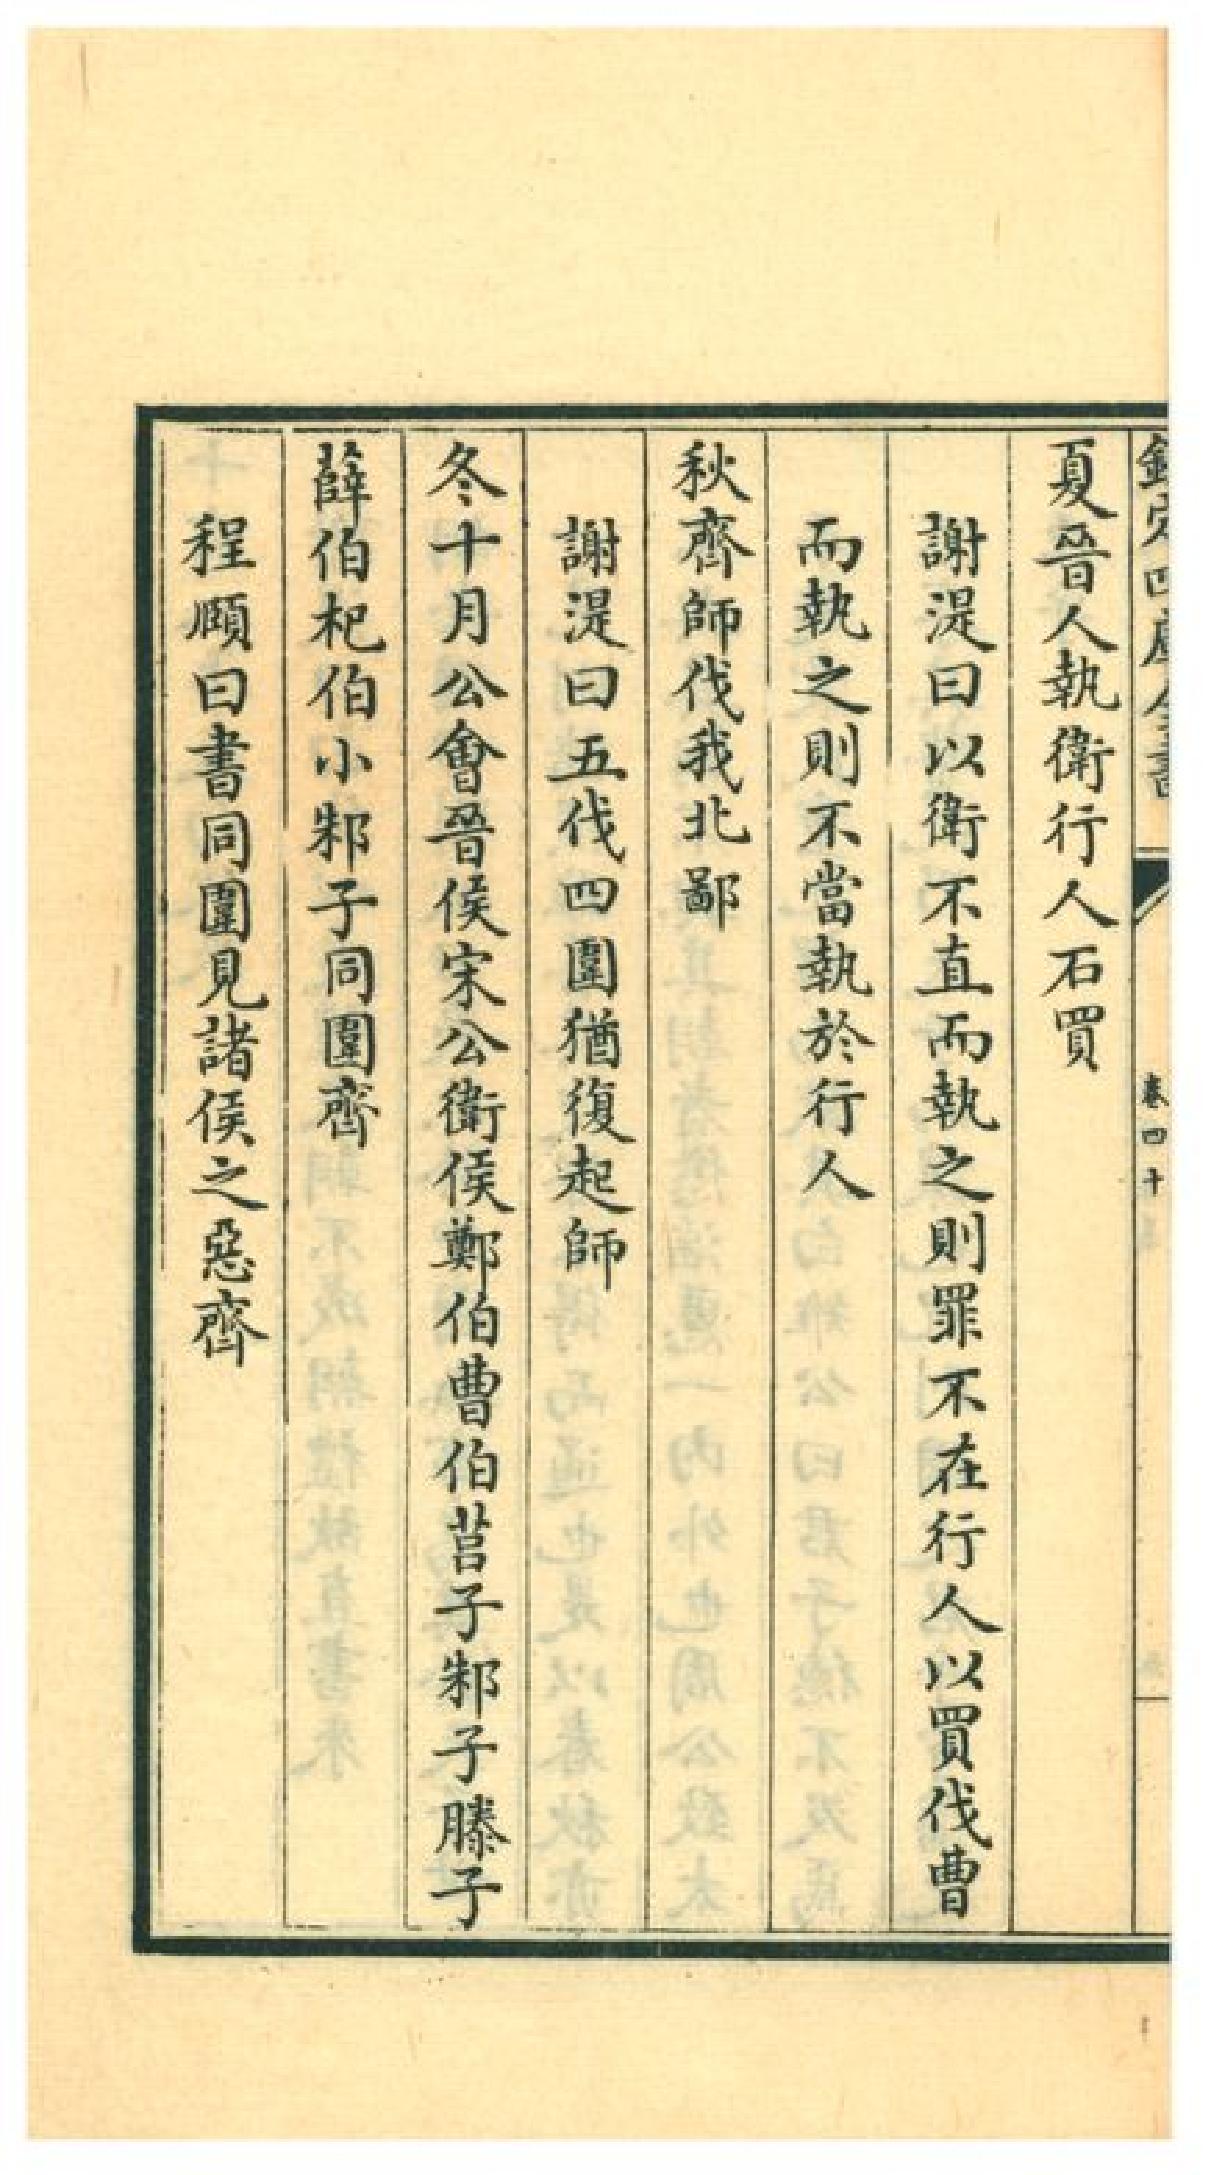 欽定四庫全書
卷四十
夏晉人執衛行人石買
謝湜曰以衛不直而執之則罪不在行人以買伐曹
而執之則不當執於行人
秋齊師伐我北鄙
謝湜曰五伐四圍猶復起師
冬十月公會晉侯宋公衛侯鄭伯曹伯莒子邾子滕子
薛伯杞伯小邾子同圍齊
程頤曰書同圍見諸侯之惡齊